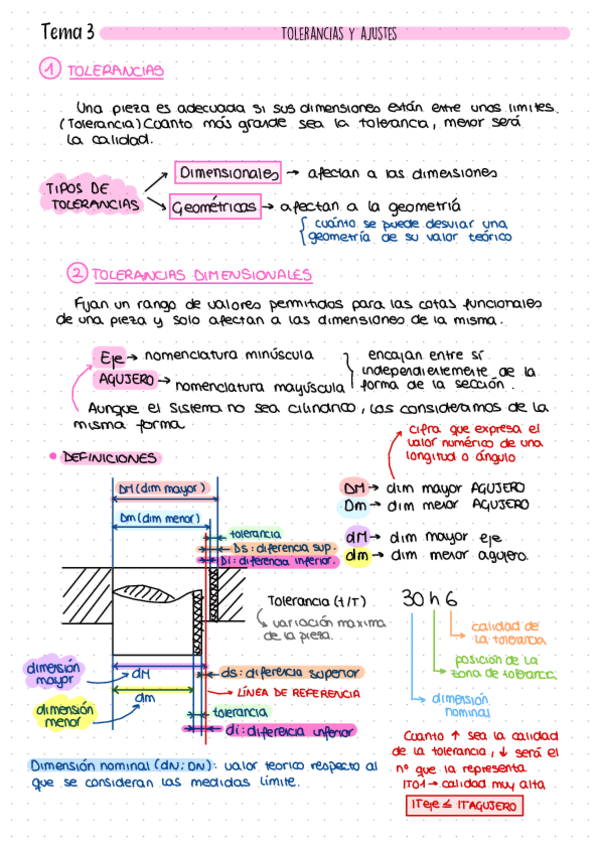 Tema 3
TOLERANCIAS Y AJUSTES
1 TOLERANCIAS
Una pieza es adecuada si sus dimensiones están entre unos limites.
(Tolerancia) Cuanto más grande sea la tolerancia, menor será
la calidad.
TIPOS DE
TOLERANCIAS
Dimensionales → afectan a las dimensiones
Geométricas → afectan a la geometriá
cuánto se puede desviar una
geometría de su valor teórico
2 TOLERANCIAS DIMENSIONALES
Fijan un rango de valores permitidos para las cotas funcionales
de una pieza y solo afectan a las dimensiones de la misma.
Eje → nomenclatura minúscula
AGUJERO → nomenclatura mayúscula
encajan entre sí
independientemente de la
forma de la sección.
Aunque el sistema no sea cilíndrico, los consideramos de la
misma forma
cifra que expresa el
valor numérico de una
longitud o ángulo
• DEFINICIONES
DM (dim mayor)
Dm (dim menor)
tolerancia
Ds: diferencia sup.
Di: diferencia inferior.
DM → dim mayor AGUJERO
Dm → dim menor AGUJERO
dM → dim mayor eje
dm → dim menor agujero.
Tolerancia (t/T)
variación maxima
de la pieza.
30 h 6
calidad de
la tolerancia
posición de la
zona de tolerancia
dimensión
nominal
dimensión
mayor
dM
dm
dimensión
menor
ds: diferencia superior
LÍNEA DE REFERENCIA
tolerancia
di: diferencia inferior
Dimensión nominal (dN; DN): valor teorico respecto al
que se consideran las medidas límite.
Cuanto ↑ sea la calidad
de la tolerancia, ↓ será el
nº que la representa
IT01 → calidad muy alta
ITeje ≤ ITAGUJERO